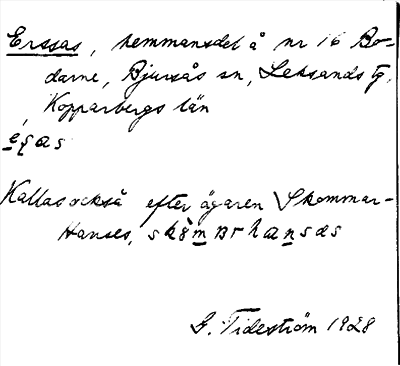 Erssas, hemmansdel å nr 16 Bo-
darne, Bjursås sn, Leksands tg,
Kopparbergs län
Kallas också efter ägaren Skommar-
Hanses,
G. Tideström 1928